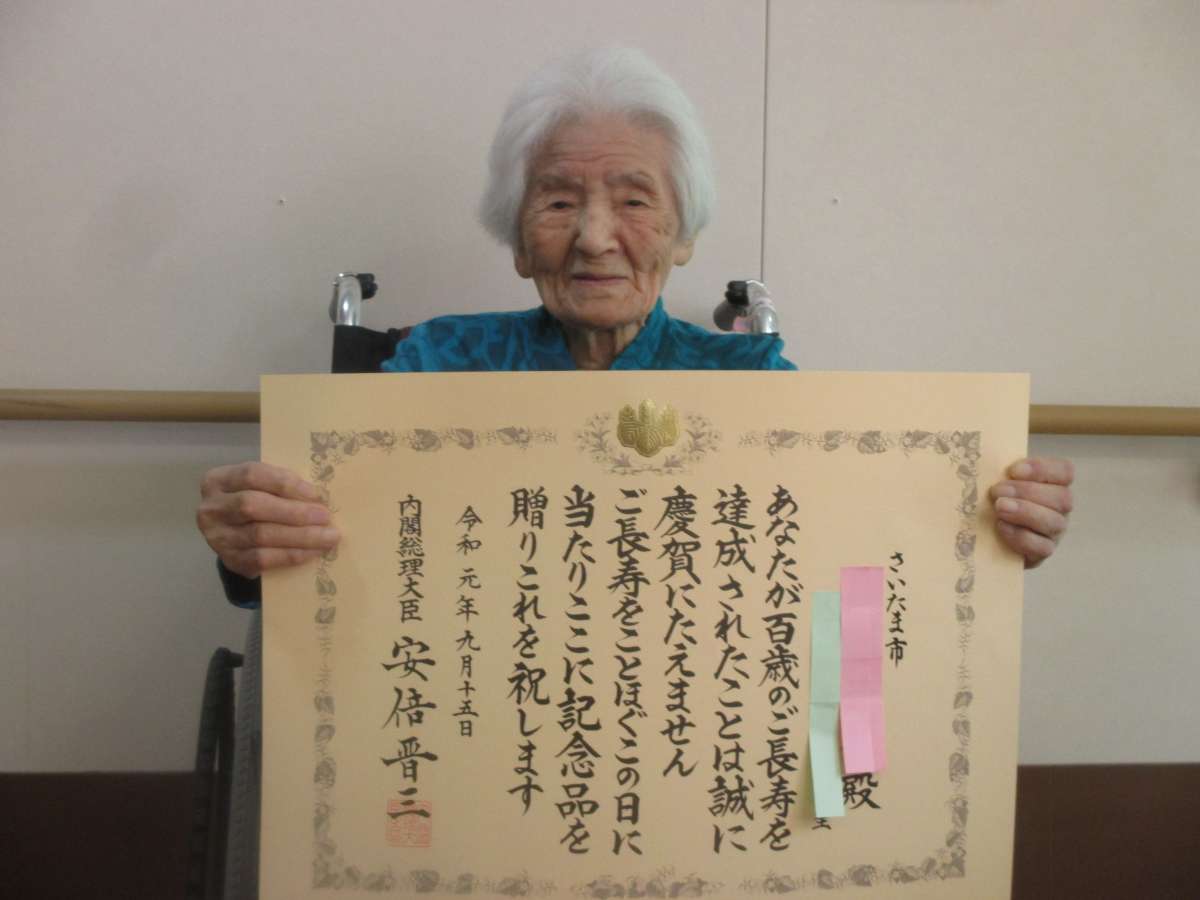 さいたま市
殿
あなたが百歳のご長寿を
達成されたことは誠に
慶賀にたえません
ご長寿をことほぐこの日に
当たりここに記念品を
贈りこれを祝します
令和元年九月十五日
内閣総理大臣 安倍晋三